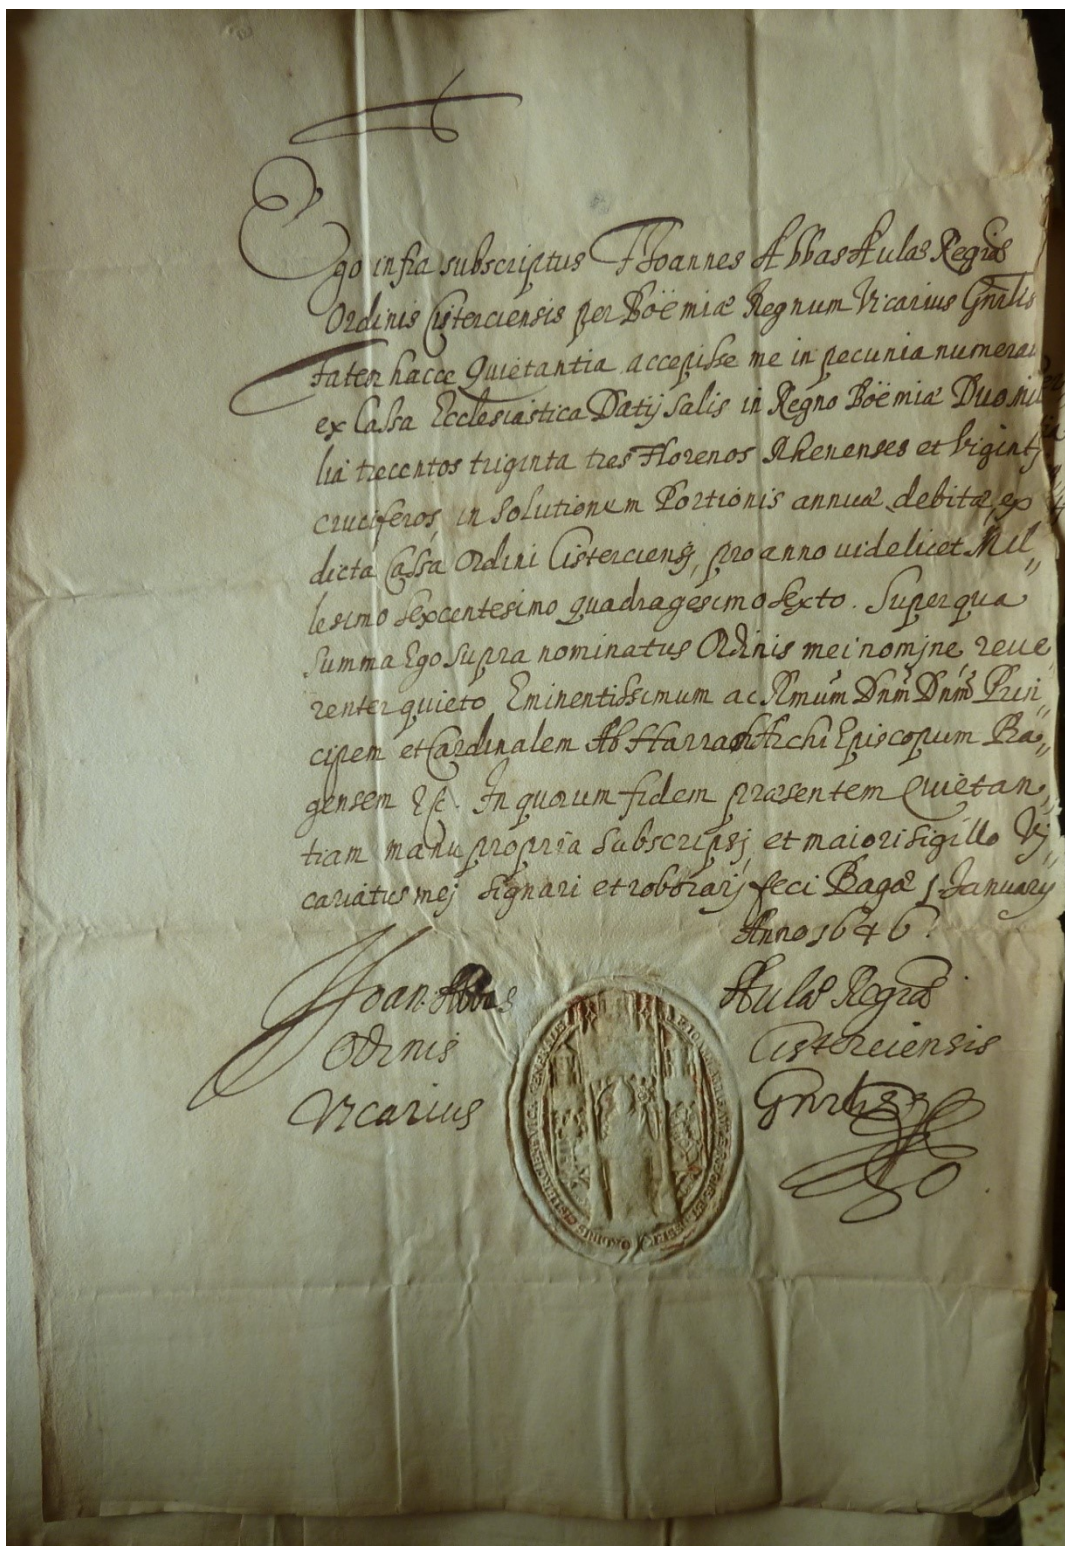 Ego infra subscriptus FJoannes Abbas Aulae Regiae
Ordinis Cisterciensis per Boëmiae Regnum Vicarius Gnrlis
Fateor hacce Quietantia accepisse me in pecunia numerata
ex Cassa Ecclesiastica Datij Salis in Regno Boëmiae Duo mil
lia trecentos triginta tres Florenos Rhenenses et Viginti
cruciferos, in solutionem Portionis annuae debitae ex
dicta Cassa Ordini Cisterciensj, pro anno uidelicet Mil„
lesimo Sexcentesimo quadragesimo Sexto. Super qua
Summa Ego Supra nominatus Ordinis mei nomjne reue
renter quieto Eminentissimum ac Rmum Dnm Dnm Prin„
cipem et Cardinalem Ab Harrach Archi Episcopum Pra„
gensem &c. In quorum fidem praesentem Quietan„
tiam manu propria Subscripsj et maiori Sigillo Vj„
cariatus mej Signari et roborarj feci Pragae 1 Januarij
Anno 1646.
Joan. Abbas Aulae Regiae
Ordinis Cisterciensis
Vicarius Gnrlis
ORDINIS CISTERCIENSIS